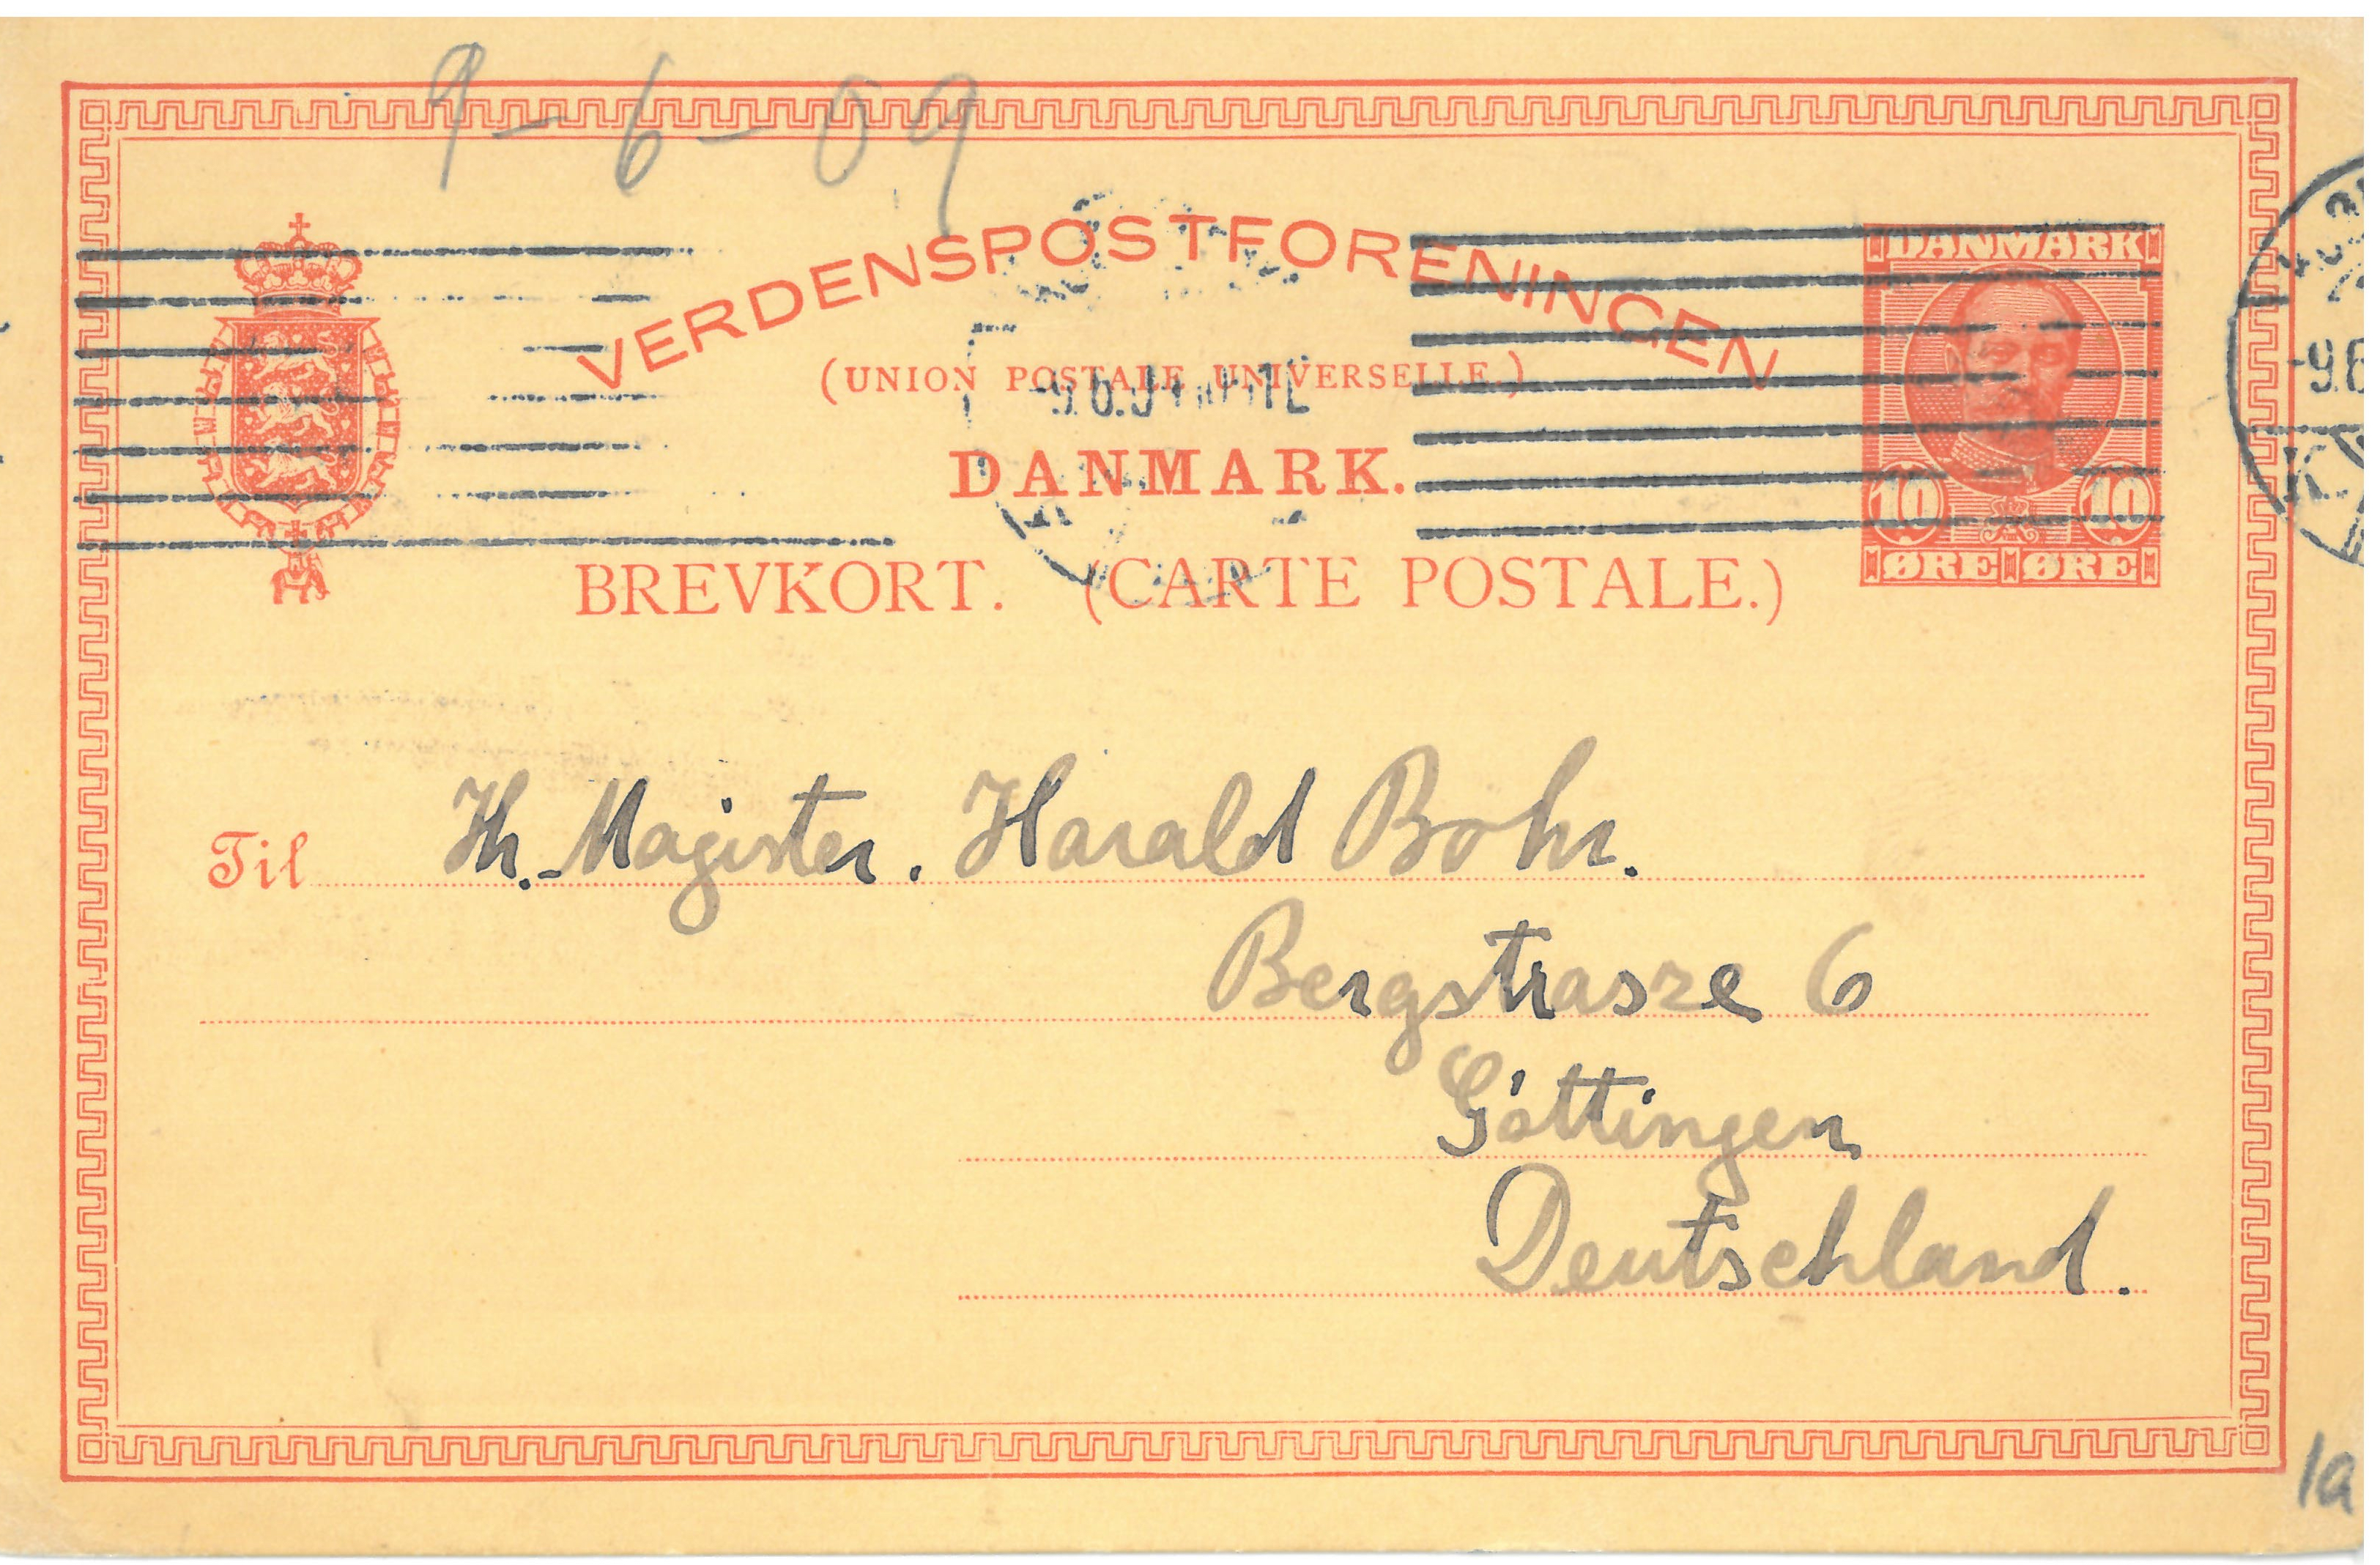 9-6-09
VERDENSPOSTFORENINGEN
(UNION POSTALE UNIVERSELLE.)
DANMARK.
BREVKORT. (CARTE POSTALE.)
DANMARK
10 10
ØRE ØRE
-9.6
Til Hr. Magister. Harald Bohr.
Bergstrasze 6
Göttingen
Deutschland.
1a